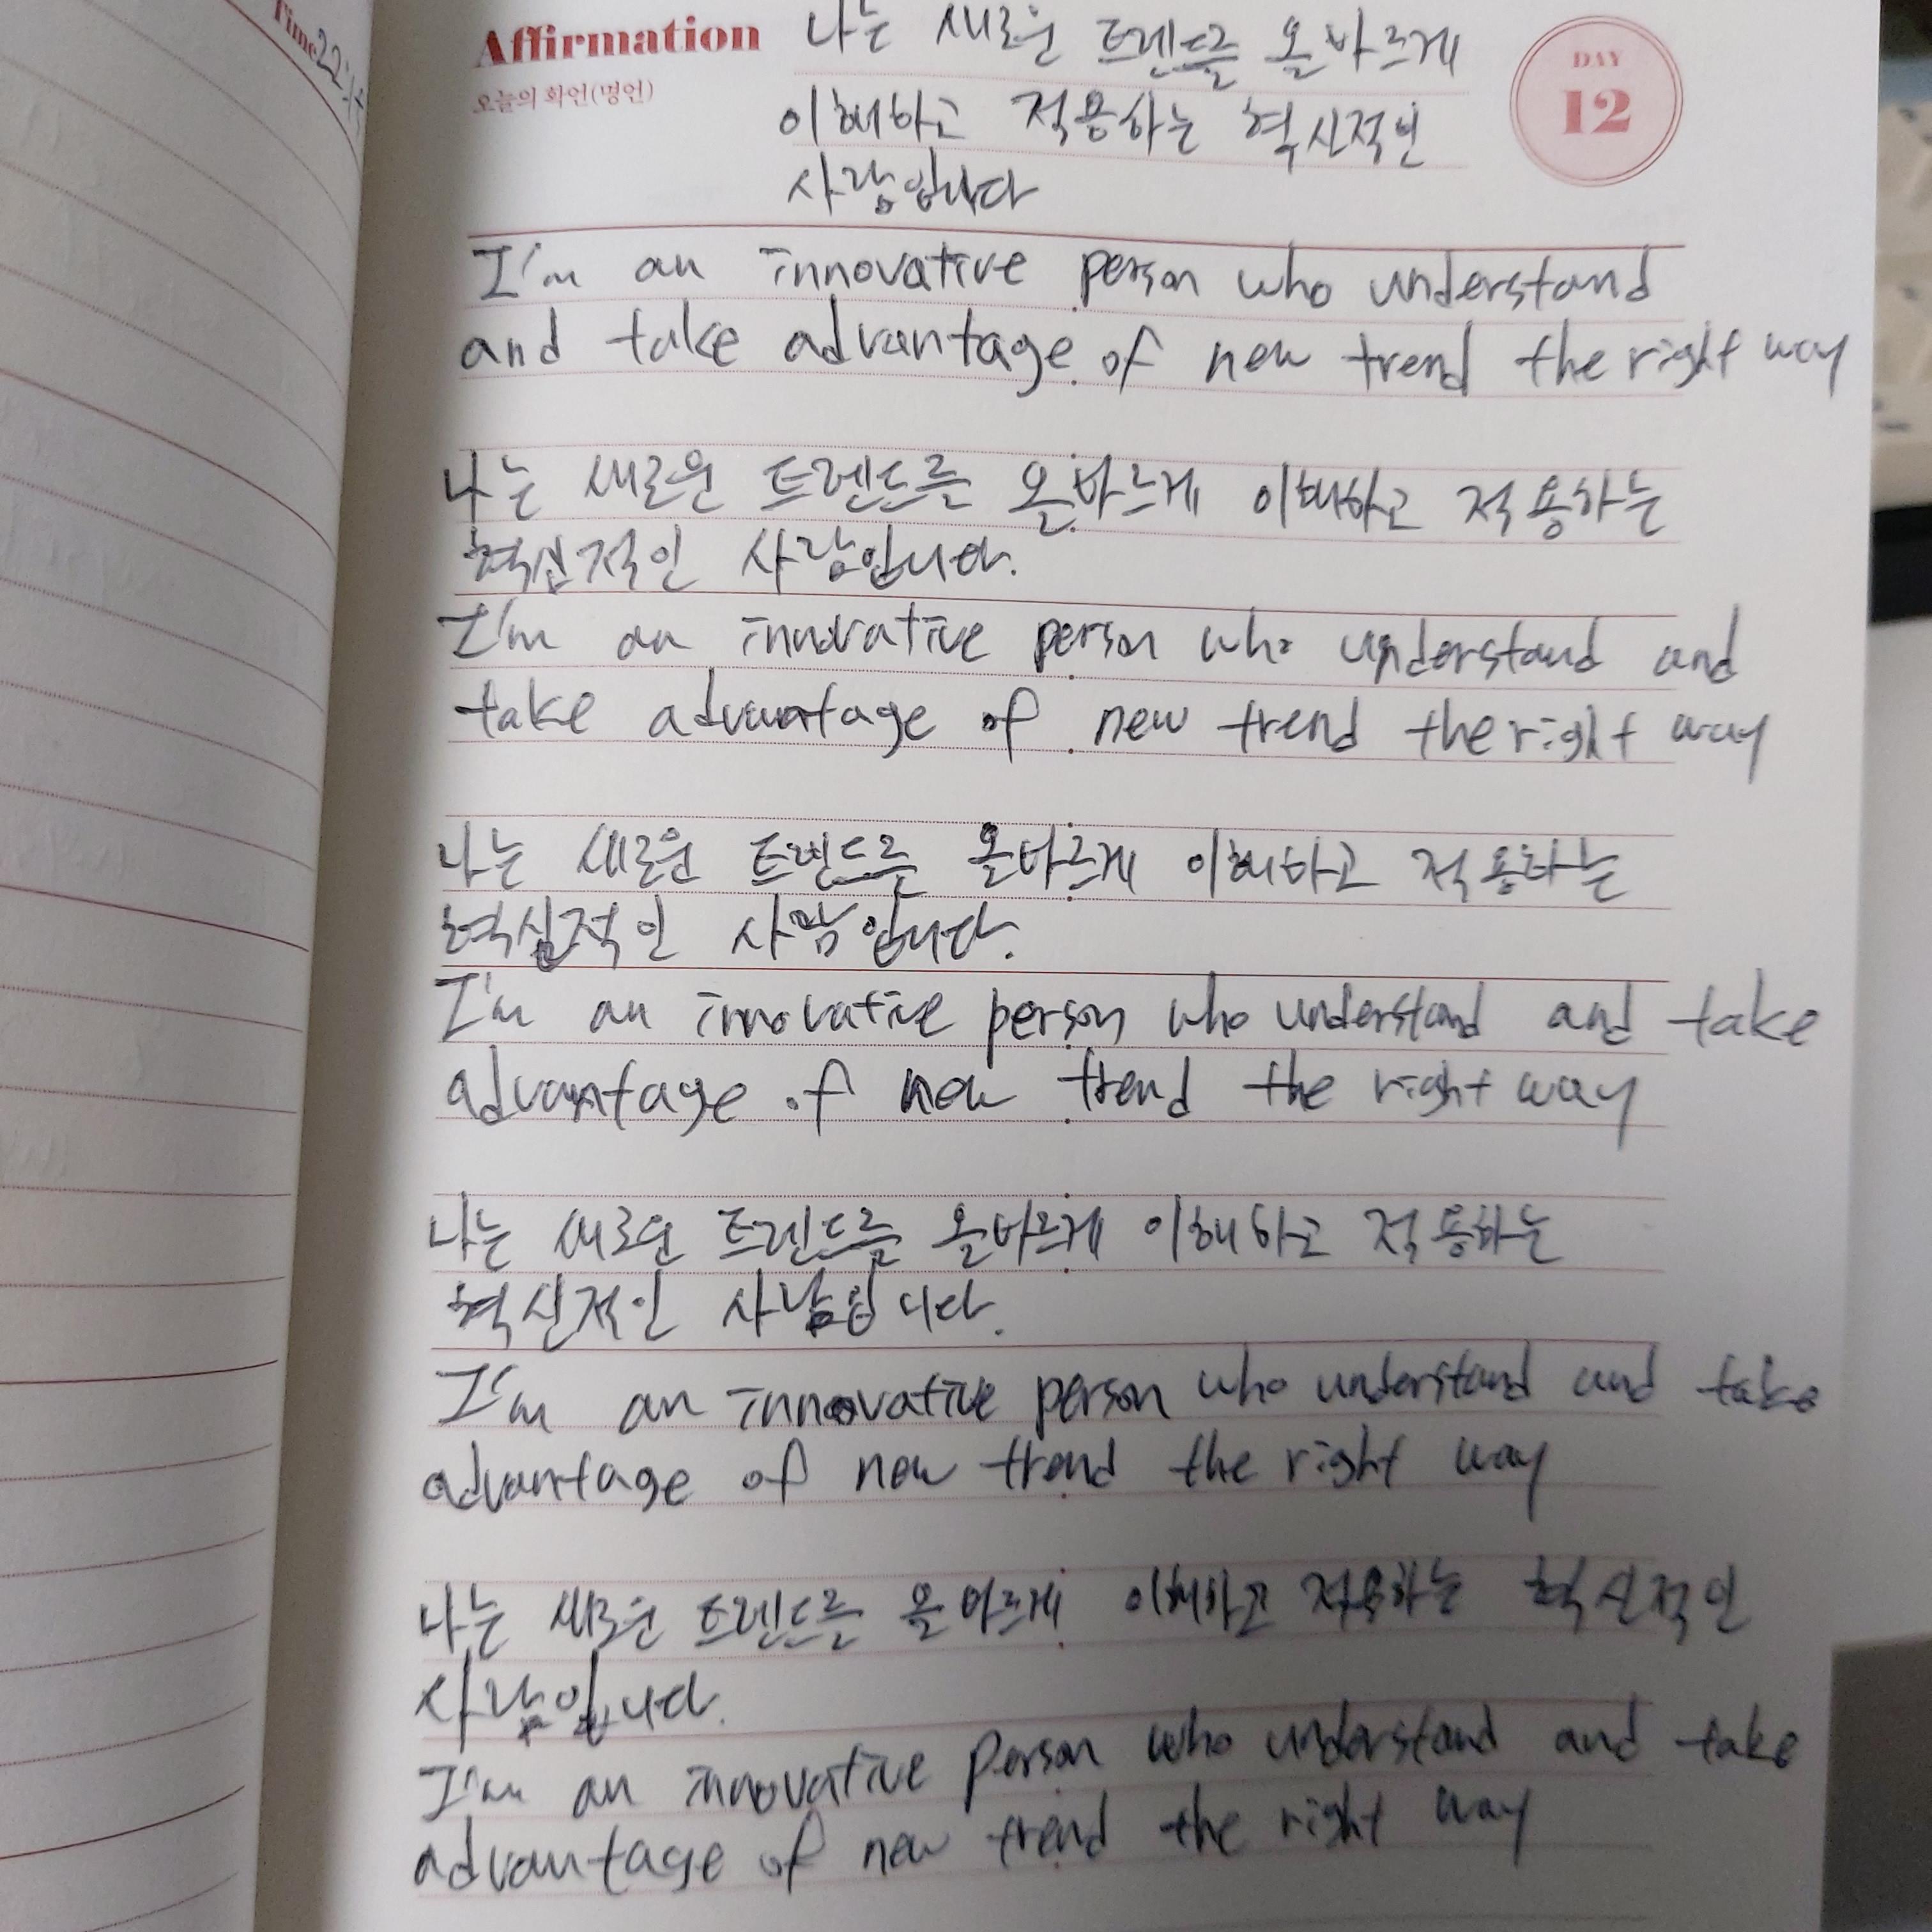 Time 22:1
Affirmation 나는 새로운 트렌드를 올바르게
오늘의 확언(명언)
DAY
12
이해하고 적용하는 혁신적인
사람입니다
I'm an innovative person who understand
and take advantage of new trend the right way
나는 새로운 트렌드를 올바르게 이해하고 적용하는
혁신적인 사람입니다.
I'm an innovative person who understand and
take advantage of new trend the right way
나는 새로운 트렌드를 올바르게 이해하고 적용하는
혁신적인 사람입니다.
I'm an innovative person who understand and take
advantage of new trend the right way
나는 새로운 트렌드를 올바르게 이해하고 적용하는
혁신적인 사람입니다.
I'm an innovative person who understand and take
advantage of new trend the right way
나는 새로운 트렌드를 올바르게 이해하고 적용하는 혁신적인
사람입니다.
I'm an innovative person who understand and take
advantage of new trend the right way